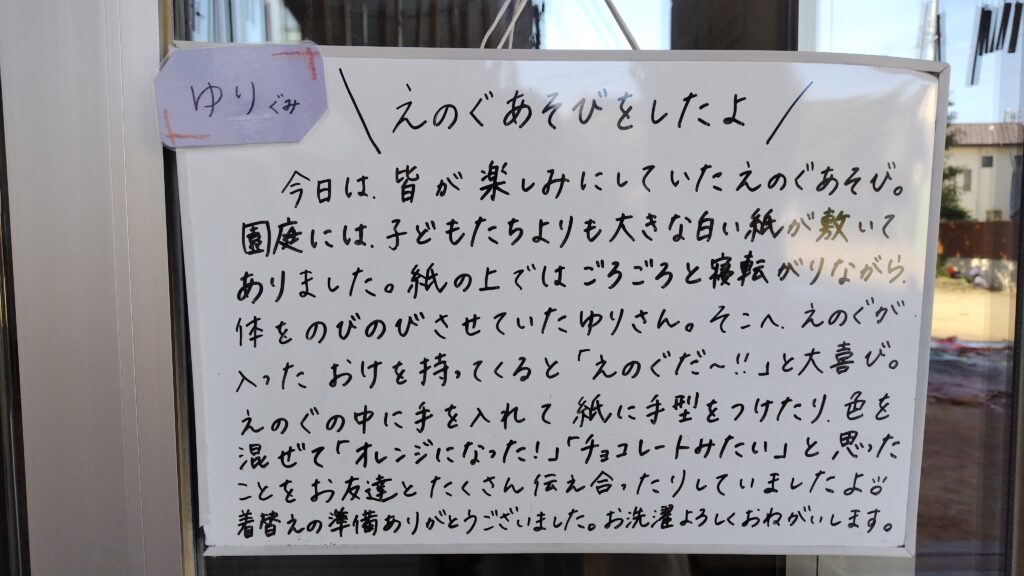 ゆりぐみ
えのぐあそびをしたよ
今日は、皆が楽しみにしていたえのぐあそび。
園庭には、子どもたちよりも大きな白い紙が敷いて
ありました。紙の上ではごろごろと寝転がりながら、
体をのびのびさせていたゆりさん。そこへ、えのぐが
入ったおけを持ってくると「えのぐだ〜!!」と大喜び。
えのぐの中に手を入れて紙に手型をつけたり、色を
混ぜて「オレンジになった!」「チョコレートみたい」と、思った
ことをお友達とたくさん伝え合ったりしていましたよ。
着替えの準備ありがとうございました。お洗濯よろしくおねがいします。